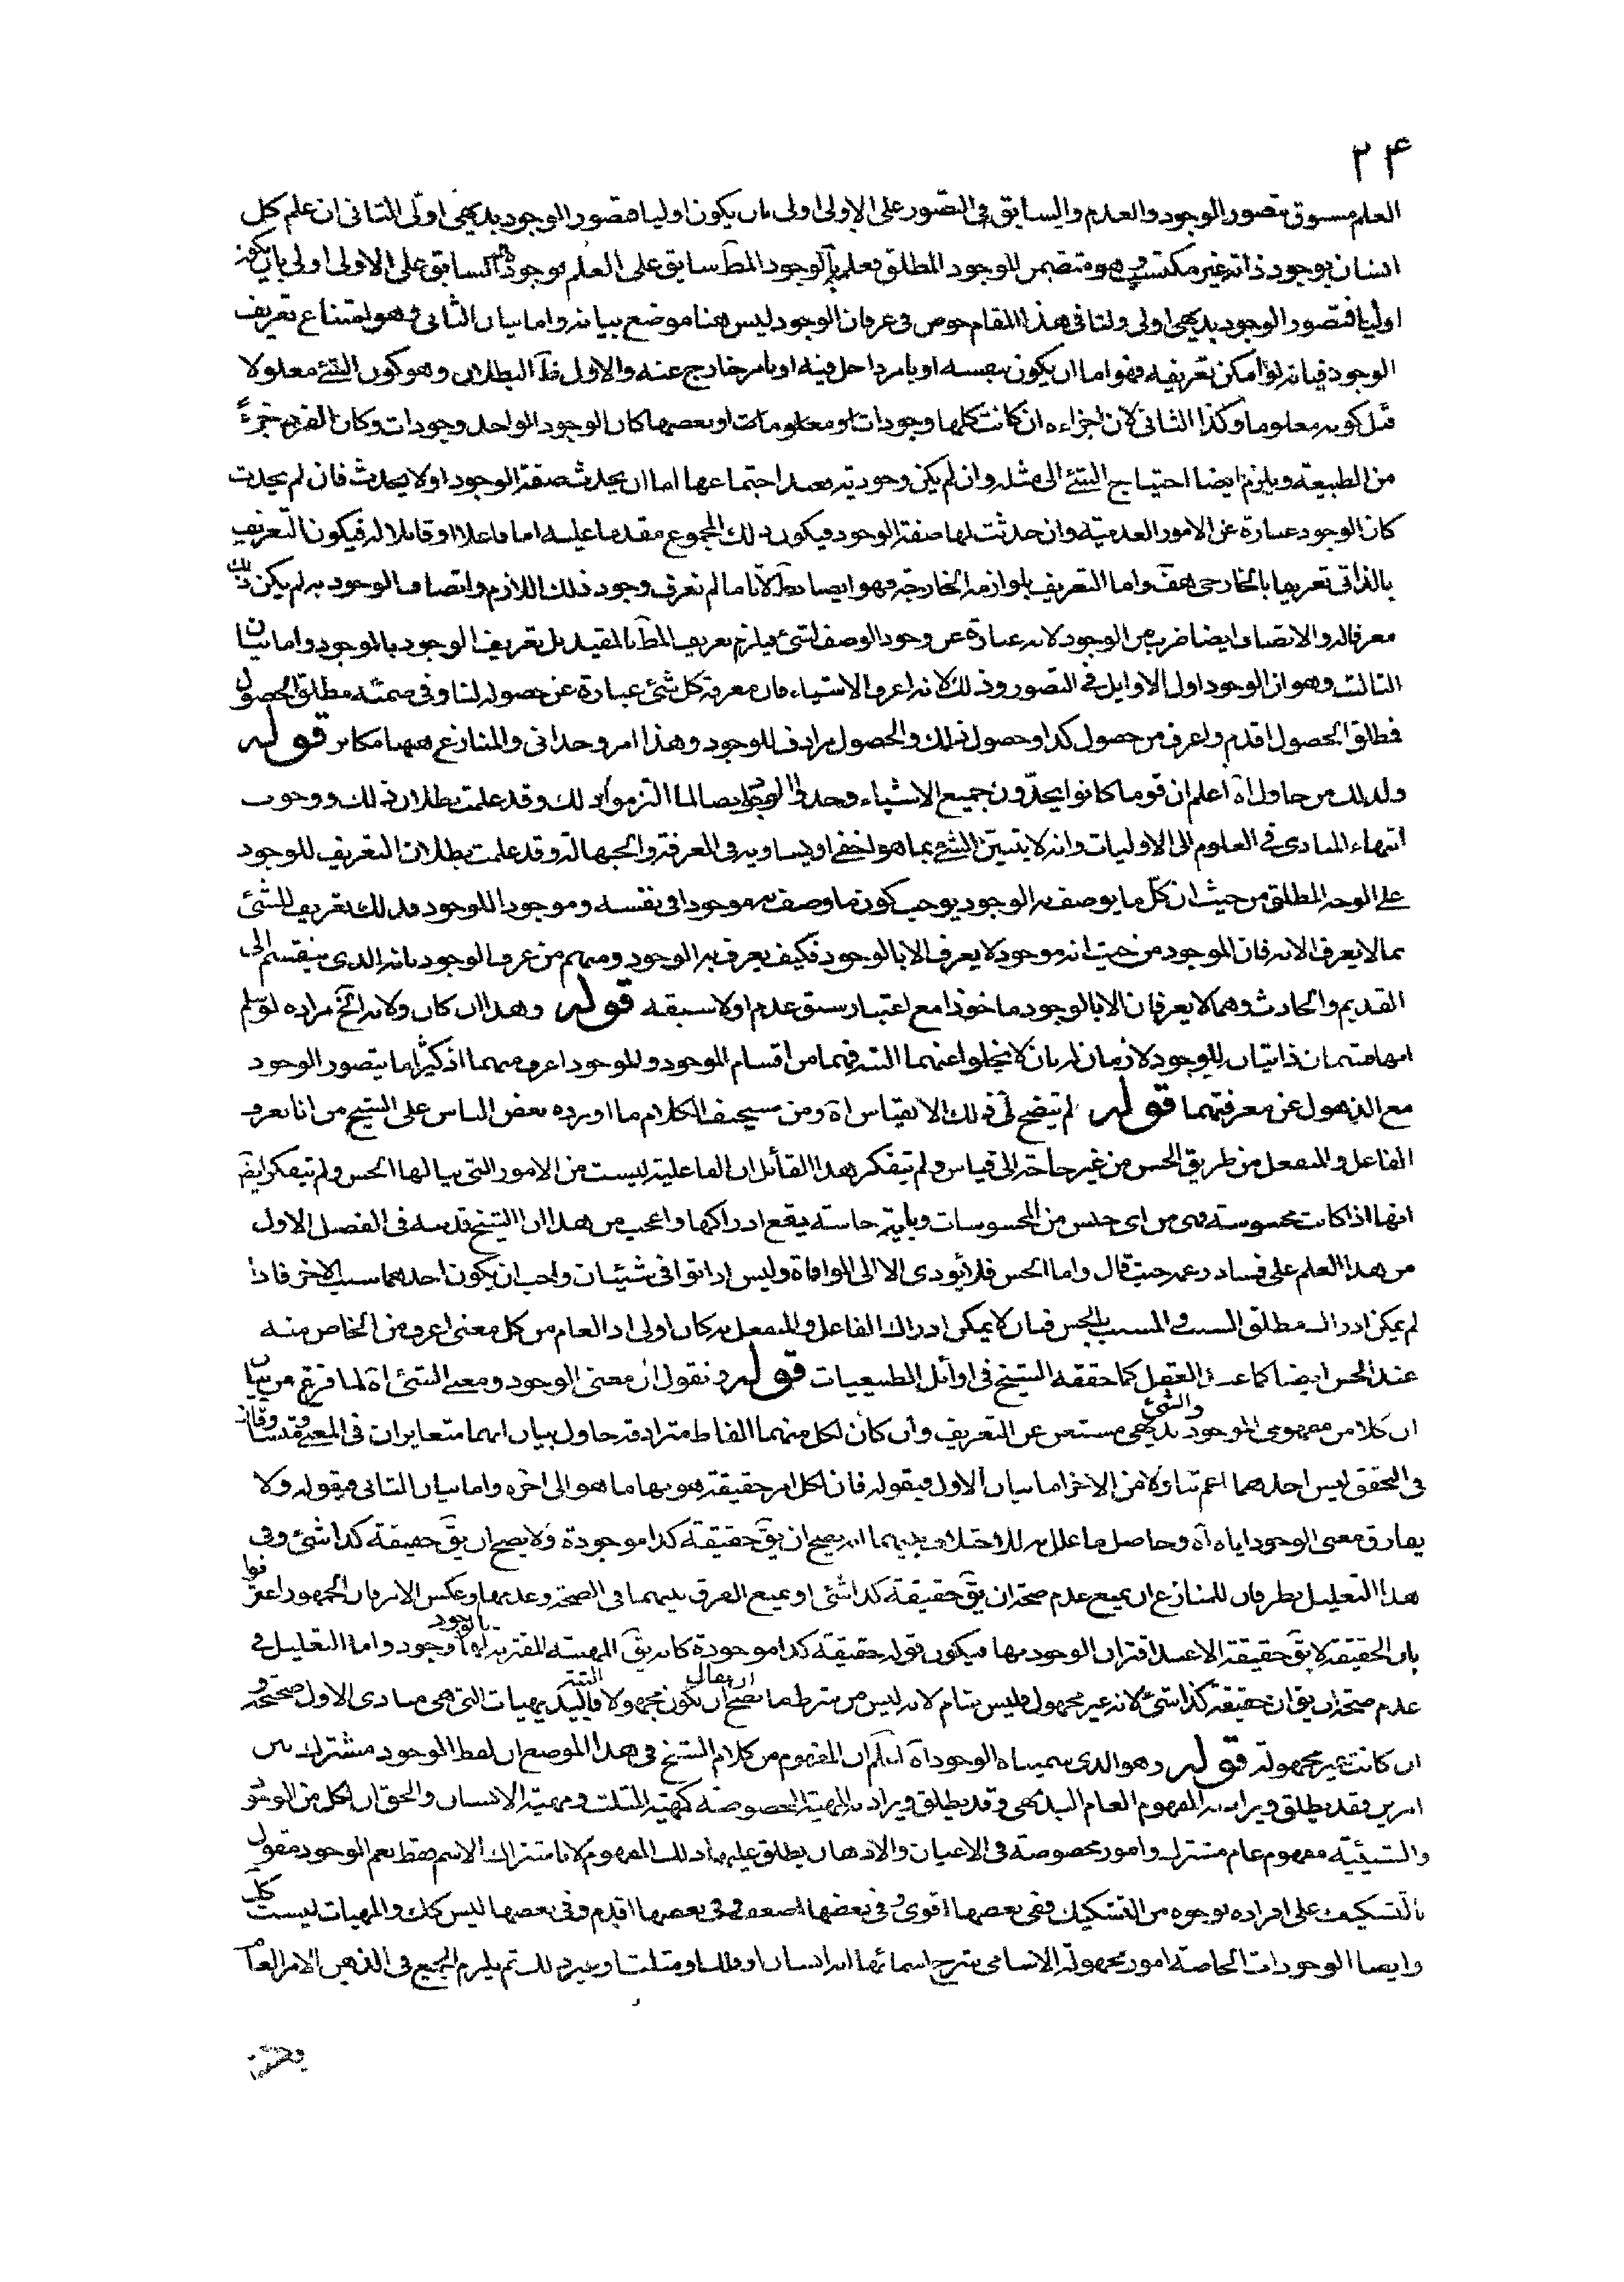 ۲۴
العلم مسبوق بتصور الوجود والعدم والسابق فى التصور على الاولى اولى بان يكون اوليا فتصور الوجود بديهى اولى الثانى ان علم كل
انسان بوجود ذاته غير مكتسب وهو متضمن للوجود المطلق فعلمه بالوجود المط سابق على العلم بوجوده والسابق على الاولى اولى بان يكون
اوليا فتصور الوجود بديهى اولى ولنا فى هذا المقام خوض فى عرفان الوجود ليس هنا موضع بيانه واما بيان الثانى وهو امتناع تعريف
الوجود فبانه لو امكن تعريفه فهو اما ان يكون بنفسه او بامر داخل فيه او بامر خارج عنه والاول ظ البطلان وهو كون الشئ معلوما
قبل كونه معلوما وكذا الثانى لان اجزاءه ان كانت كلها وجودات او معلومات او بعضها كان الوجود الواحد وجودات وكان الفرد جزءً
من الطبيعة ويلزم ايضا احتياج الشئ الى مثله وان لم يكن وجودية فعند اجتماعها اما ان يحدث صفة الوجود او لا يحدث فان لم يحدث
كان الوجود عبارة عن الامور العدمية وان حدثت لها صفة الوجود فيكون ذلك المجموع مقدما عليه اما فاعلا او قابلا له فيكون التعريف
بالذاتى تعريفا بالخارجى هف واما التعريف بلوازمه الخارجة فهو ايضا بط لانا ما لم نعرف وجود ذلك اللازم واتصاف الوجود به لم يكن ذلك
معرفا له والاتصاف ايضا ضرب من الوجود لانه عبارة عن وجود الوصف لشئ فيلزم تعريف المط بالمقيد بل تعريف الوجود بالموجود واما بيان
الثالث وهو ان الوجود اول الاوايل فى التصور وذلك لانه اعرف الاشياء فان معرفة كل شئ عبارة عن حصوله لنا وفى ضمنه مطلق الحصول
فمطلق الحصول اقدم واعرف من حصول كذا وحصول ذلك والحصول مرادف للوجود وهذا امر وجدانى والمنازع ههنا مكابر قوله
ولذلك من حاول آه اعلم ان قوما كانوا يحدّون جميع الاشياء وحدوا الوجود ايضا لما التزموا ذلك وقد علمت بطلان ذلك ووجوب
انتهاء المبادى فى العلوم الى الاوليات وانه لا يتبين الشئ بما هو اخفى او يساويه فى المعرفة والجهالة وقد علمت بطلان التعريف للوجود
على الوجه المطلق من حيث ان كل ما يوصف به الوجود يوجب كون ما وصف به موجودا فى نفسه وموجودا للوجود فذلك تعريف للشئ
بما لا يعرف الا به فان الموجود من حيث انه موجود لا يعرف الا بالوجود فكيف يعرف به الوجود ومنهم من عرف الوجود بانه الذى ينقسم الى
القديم والحادث وهما لا يعرفان الا بالوجود ماخوذا مع اعتبار سبق عدم او لا سبقه قوله وهذا ان كان ولا بد الخ مراده لو سلم
انهما قسمان ذاتيان للوجود لازمان له بان لا يخلوا عنهما البتة فهما من اقسام الموجود والموجود اعرف منهما اذ كثيرا ما يتصور الوجود
مع الذهول عن معرفتهما قوله لم يتضح لى ذلك الا بقياس آه ومن سخيف الكلام ما اورده بعض الناس على الشيخ من انا نعرف
الفاعل والمنفعل من طريق الحس من غير حاجة الى قياس ولم يتفكر هذا القائل ان الفاعلية ليست من الامور التى ينالها الحس ولم يتفكر ايضا
انها اذا كانت محسوسة فهى من اى جنس من المحسوسات وباية حاسة يقع ادراكها واعجب من هذا ان الشيخ قد نبه فى الفصل الاول
من هذا العلم على فساد زعمه حيث قال واما الحس فلا يؤدى الا الى الموافاة وليس اذا توافى شيئان وجب ان يكون احدهما سبب الاخر فاذا
لم يمكن ادراك مطلق السبب والمسبب بالحس فبان لا يمكن ادراك الفاعل والمنفعل به كان اولى اذ العام من كل معنى اعرف من الخاص منه
عند الحس ايضا كما عند العقل كما حققه الشيخ فى اوائل الطبيعيات قوله ونقول ان معنى الوجود ومعنى الشئ آه لما فرغ من بيان
ان كلا من مفهومى الموجود والشئ بديهى مستغن عن التعريف وان كان لكل منهما الفاظ مترادفة حاول بيان انهما متغايران فى المعنى ومتساوقان
فى التحقق ليس احدهما اعم تناولا من الاخر اما بيان الاول فبقوله فان لكل امر حقيقة هو بها ما هو الى اخره واما بيان الثانى فبقوله ولا
يفارق معنى الوجود اياه آه وحاصل ما علل به للاختلاف بينهما انه يصح ان يق حقيقة كذا موجودة ولا يصح ان يق حقيقة كذا شئ وفى
هذا التعليل نظر فان للمنازع ان يمنع عدم صحة ان يق حقيقة كذا شئ او يمنع الفرق بينهما فى الصحة وعدمها وعكس الامر فان الجمهور اعترفوا
بان الحقيقة لا يق حقيقة الا عند اقتران الوجود بها فيكون قوله حقيقة كذا موجودة كانه يق المهية المقترنة بالوجود لها وجود واما التعليل فى
عدم صحة ان يق ان حقيقة كذا شئ لانه غير مجهول فليس بتام لانه ليس من شرط ما يصح ان يقال ان يكون مجهولا البتة فالبديهيات التى هى مبادى الاول صحيحة و
ان كانت غير مجهولة قوله وهو الذى سميناه الوجود آه اعلم ان المفهوم من كلام الشيخ فى هذا الموضع ان لفظ الوجود مشترك بين
امرين فقد يطلق ويراد به المفهوم العام البديهى وقد يطلق ويراد به المهية المخصوصة كمهية المثلث ومهية الانسان والحق ان لكل من الوجود
والشيئية مفهوم عام مشترك وامور مخصوصة فى الاعيان والاذهان يطلق عليها ذلك المفهوم لا باشتراك الاسم فقط نعم الوجود مقول
بالتشكيك على افراده بوجوه من التشكيك ففى بعضها اقوى وفى بعضها اضعف وفى بعضها اقدم وفى بعضها ليس كك والمهيات ليست كك
وايضا الوجودات الخاصة امور مجهولة الاسامى شرح اسمائها انه انسان او فلك او مثلث او غير ذلك ثم يلزم الجميع فى الذهن الامر العام